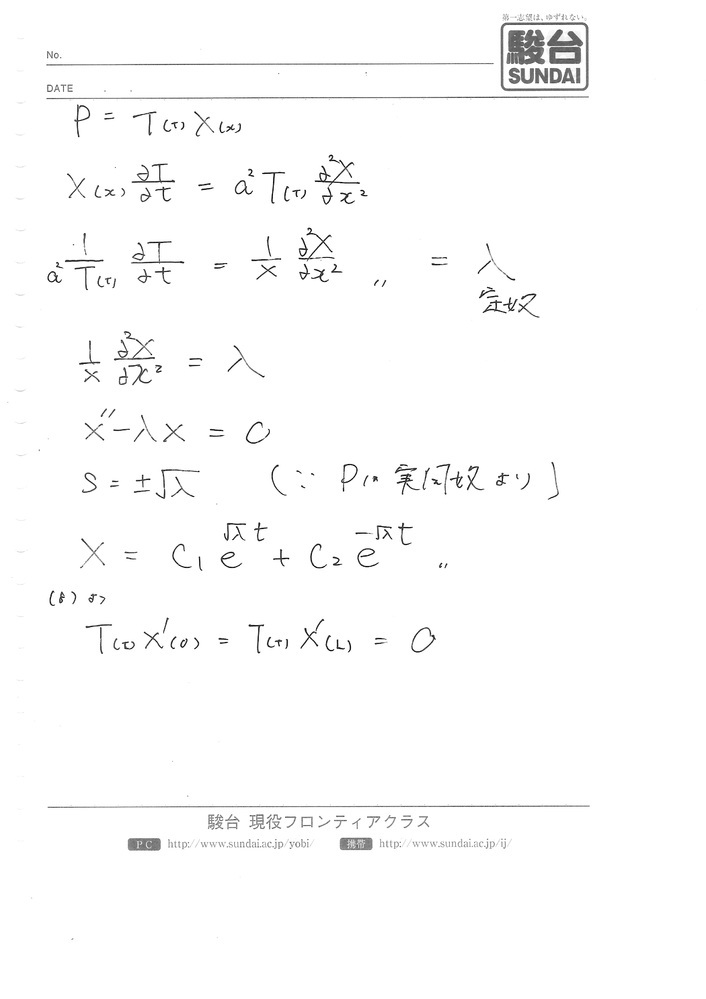 第一志望は、ゆずれない。
駿台
SUNDAI
No.
DATE . .
P = T(T) X(x)
X(x) ∂T/∂t = a² T(T) ∂²X/∂x²
1/(a² T(T)) ∂T/∂t = 1/X ∂²X/∂x² 〃 = λ
定奴
1/X ∂²X/∂x² = λ
X″ − λX = 0
S = ±√λ (∵ Pは実関奴より)
X = C₁ e^{√λ t} + C₂ e^{−√λ t} 〃
よって
T(T) X′(0) = T(T) X′(L) = 0
駿台 現役フロンティアクラス
PC http://www.sundai.ac.jp/yobi/ 携帯 http://www.sundai.ac.jp/ij/